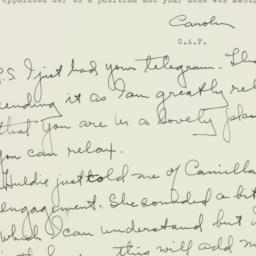 appointed her to a position and your name was
Carolyn
C.A.F.
P.S. I just had your telegram.
sending it as I am greatly
that you are in a lovely
you can relax.
Huldie just told me of Camilla
engagement. She sounded a bit
which I can understand but
this will add